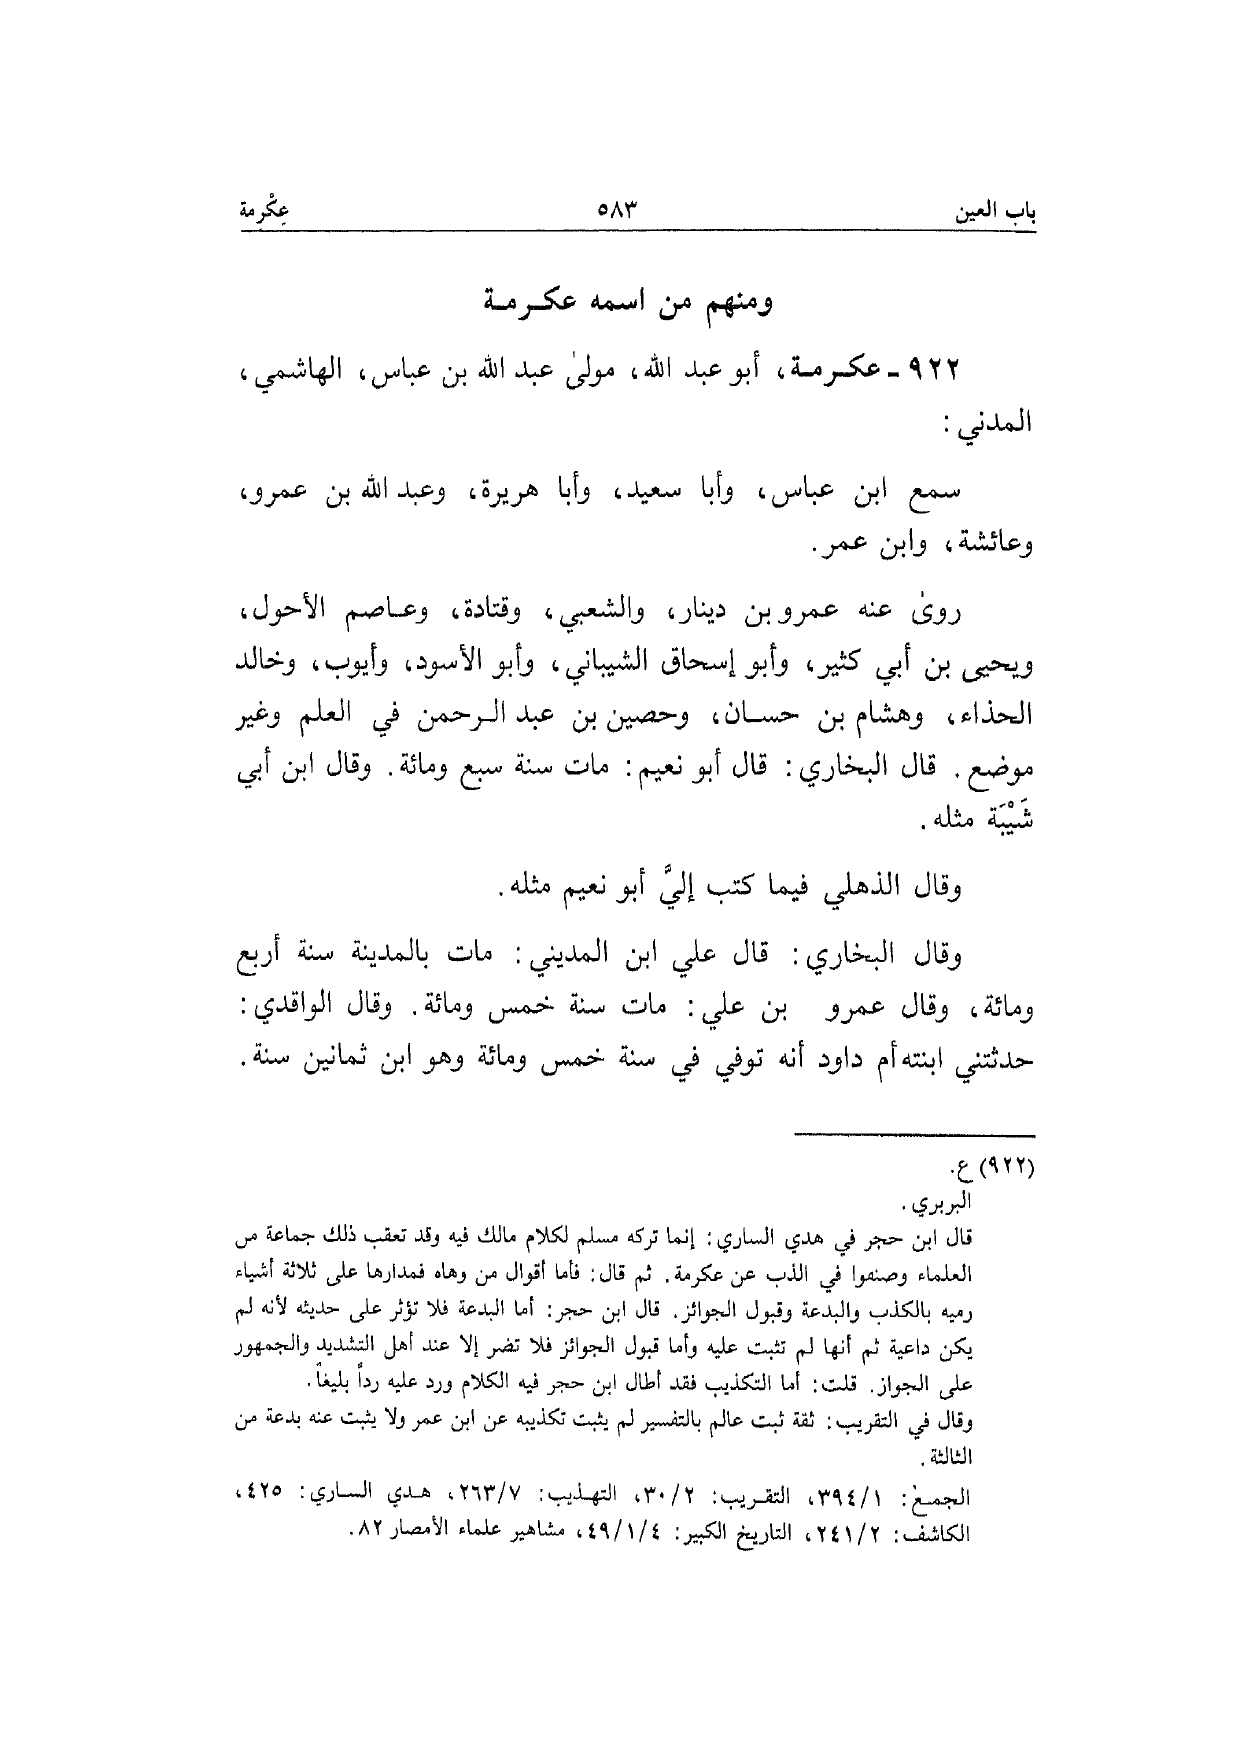 باب العين ٥٨٣ عِكْرمة
ومنهم من اسمه عكـرمـة
٩٢٢ ـ عكـرمـة، أبو عبد الله، مولىٰ عبد الله بن عباس، الهاشمي،
المدني :
سمع ابن عباس، وأبا سعيد، وأبا هريرة، وعبد الله بن عمرو،
وعائشة، وابن عمر.
روىٰ عنه عمرو بن دينار، والشعبي، وقتادة، وعـاصم الأحول،
ويحيى بن أبي كثير، وأبو إسحاق الشيباني، وأبو الأسود، وأيوب، وخالد
الحذاء، وهشام بن حسـان، وحصين بن عبد الـرحمن في العلم وغير
موضع. قال البخاري: قال أبو نعيم: مات سنة سبع ومائة. وقال ابن أبي
شَيْبَة مثله.
وقال الذهلي فيما كتب إليَّ أبو نعيم مثله.
وقال البخاري: قال علي ابن المديني: مات بالمدينة سنة أربع
ومائة، وقال عمرو بن علي: مات سنة خمس ومائة. وقال الواقدي:
حدثتني ابنته أم داود أنه توفي في سنة خمس ومائة وهو ابن ثمانين سنة.
(٩٢٢) ع.
البربري.
قال ابن حجر في هدي الساري: إنما تركه مسلم لكلام مالك فيه وقد تعقب ذلك جماعة من
العلماء وصنفوا في الذب عن عكرمة. ثم قال: فأما أقوال من وهاه فمدارها على ثلاثة أشياء
رميه بالكذب والبدعة وقبول الجوائز. قال ابن حجر: أما البدعة فلا تؤثر على حديثه لأنه لم
يكن داعية ثم أنها لم تثبت عليه وأما قبول الجوائز فلا تضر إلا عند أهل التشديد والجمهور
على الجواز. قلت: أما التكذيب فقد أطال ابن حجر فيه الكلام ورد عليه رداً بليغاً.
وقال في التقريب: ثقة ثبت عالم بالتفسير لم يثبت تكذيبه عن ابن عمر ولا يثبت عنه بدعة من
الثالثة.
الجمع: ٣٩٤/١، التقـريب: ٣٠/٢، التهـذيب: ٢٦٣/٧، هـدي السـاري: ٤٢٥،
الكاشف: ٢٤١/٢، التاريخ الكبير: ٤٩/١/٤، مشاهير علماء الأمصار ٨٢.